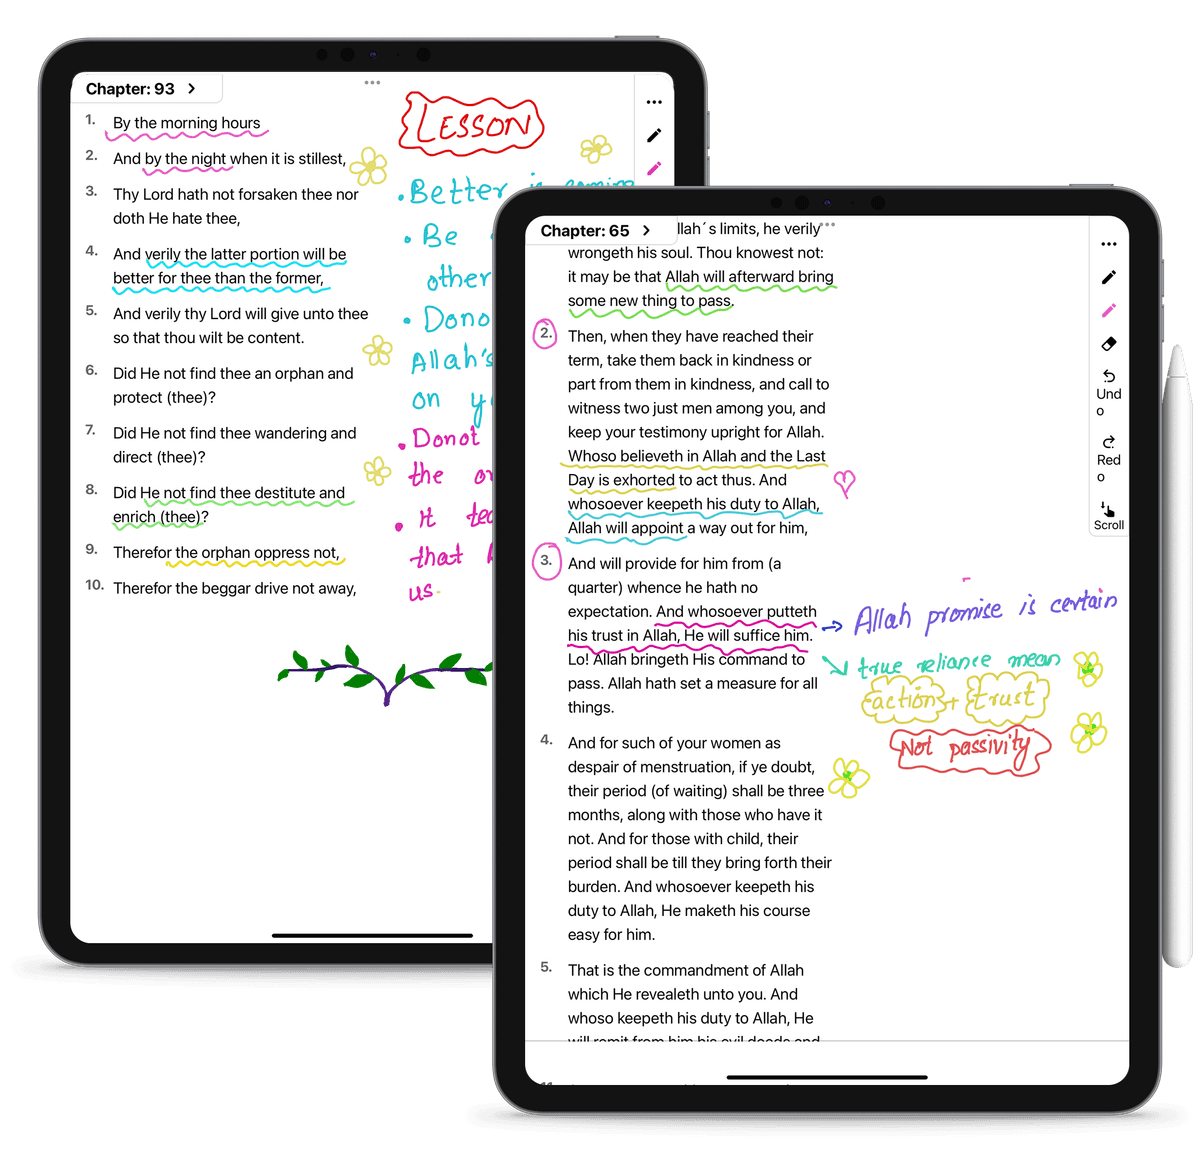 Chapter: 93 >
1. By the morning hours
2. And by the night when it is stillest,
3. Thy Lord hath not forsaken thee nor
doth He hate thee,
4. And verily the latter portion will be
better for thee than the former,
5. And verily thy Lord will give unto thee
so that thou wilt be content.
6. Did He not find thee an orphan and
protect (thee)?
7. Did He not find thee wandering and
direct (thee)?
8. Did He not find thee destitute and
enrich (thee)?
9. Therefor the orphan oppress not,
10. Therefor the beggar drive not away,
LESSON
• Better is coming
• Be
other
• Dono
Allah's
on y
• Donot
the or
• It tea
that
us.
Chapter: 65 >
llah´s limits, he verily
wrongeth his soul. Thou knowest not:
it may be that Allah will afterward bring
some new thing to pass.
2. Then, when they have reached their
term, take them back in kindness or
part from them in kindness, and call to
witness two just men among you, and
keep your testimony upright for Allah.
Whoso believeth in Allah and the Last
Day is exhorted to act thus. And
whosoever keepeth his duty to Allah,
Allah will appoint a way out for him,
3. And will provide for him from (a
quarter) whence he hath no
expectation. And whosoever putteth
his trust in Allah, He will suffice him.
Lo! Allah bringeth His command to
pass. Allah hath set a measure for all
things.
4. And for such of your women as
despair of menstruation, if ye doubt,
their period (of waiting) shall be three
months, along with those who have it
not. And for those with child, their
period shall be till they bring forth their
burden. And whosoever keepeth his
duty to Allah, He maketh his course
easy for him.
5. That is the commandment of Allah
which He revealeth unto you. And
whoso keepeth his duty to Allah, He
will remit from him his evil deeds and
→ Allah promise is certain
true reliance mean
action + trust
Not passivity
Und
o
Red
o
Scroll